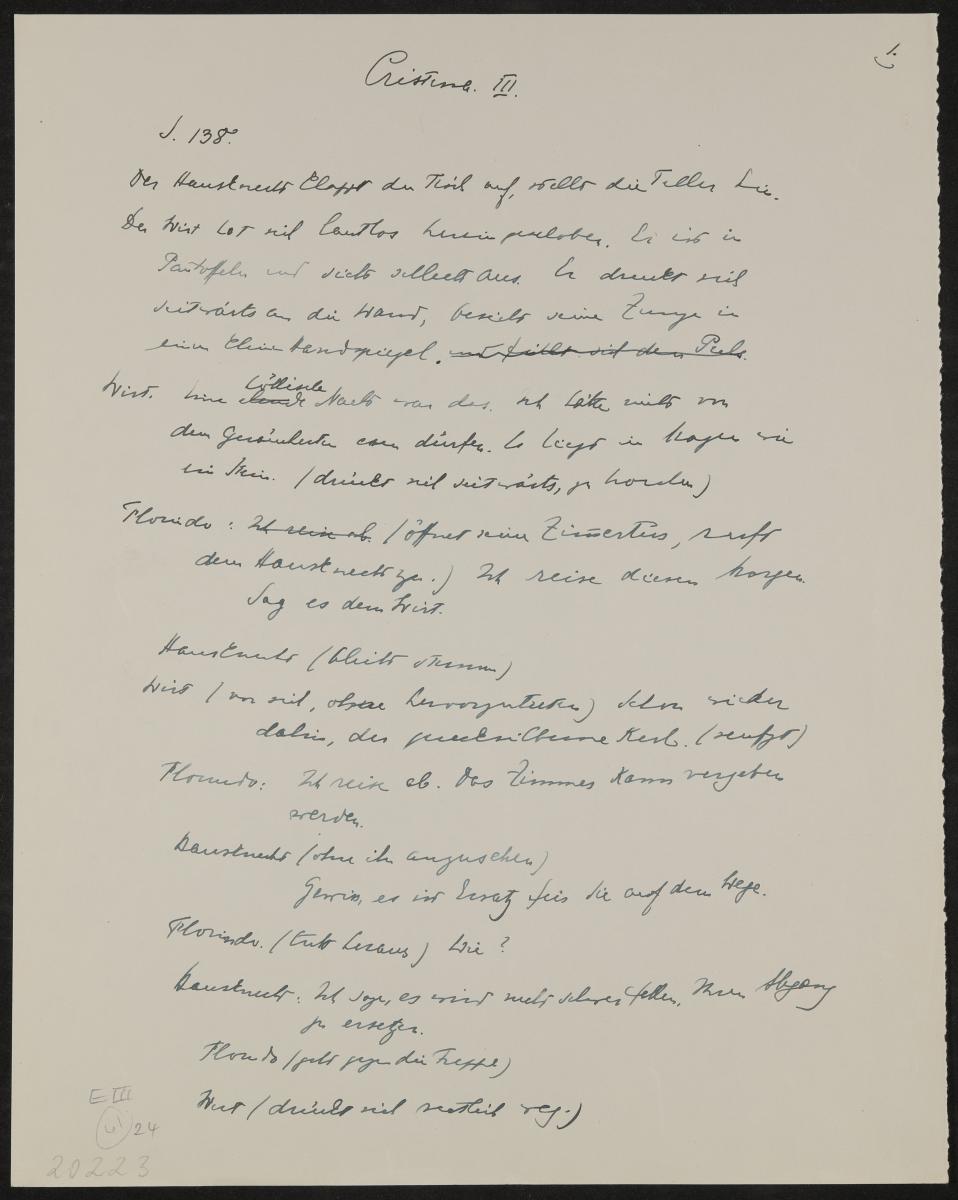 1.
Cristina. III.
S. 138.
Der Hausknecht klappt den Tisch auf, stellt die Teller hin.
Der Wirt hat sich lautlos hereingeschoben. Er ist in
Pantoffeln und sieht schlecht aus. Er drückt sich
seitwärts an die Wand, besieht seine Zunge in
einem kleinen Handspiegel. und fühlt sich den Puls.
höllische
Wirt. Eine elende Nacht war das. Ich hätte nichts von
dem Geräucherten essen dürfen. Es liegt im Magen wie
ein Stein. (drückt sich seitwärts, zu horchen)
Florindo: Ich reise ab. (öffnet seine Zimmertür, ruft
dem Hausknecht zu.) Ich reise diesen Morgen.
Sag es dem Wirt.
Hausknecht (bleibt stumm)
Wirt (vor sich, ohne hervorzutreten) Schon wieder
dahin, der quecksilberne Kerl. (seufzt)
Florindo: Ich reise ab. Das Zimmer kann vergeben
werden.
Hausknecht (ohne ihn anzusehen)
Gewiss, es ist Ersatz für Sie auf dem Wege.
Florindo. (tritt heraus) Wie?
Hausknecht. Ich sage, es wird nicht schwer fallen, Ihren Abgang
zu ersetzen.
Florindo (geht gegen die Treppe)
Wirt (drückt sich seitlich weg.)
E III
24
20223